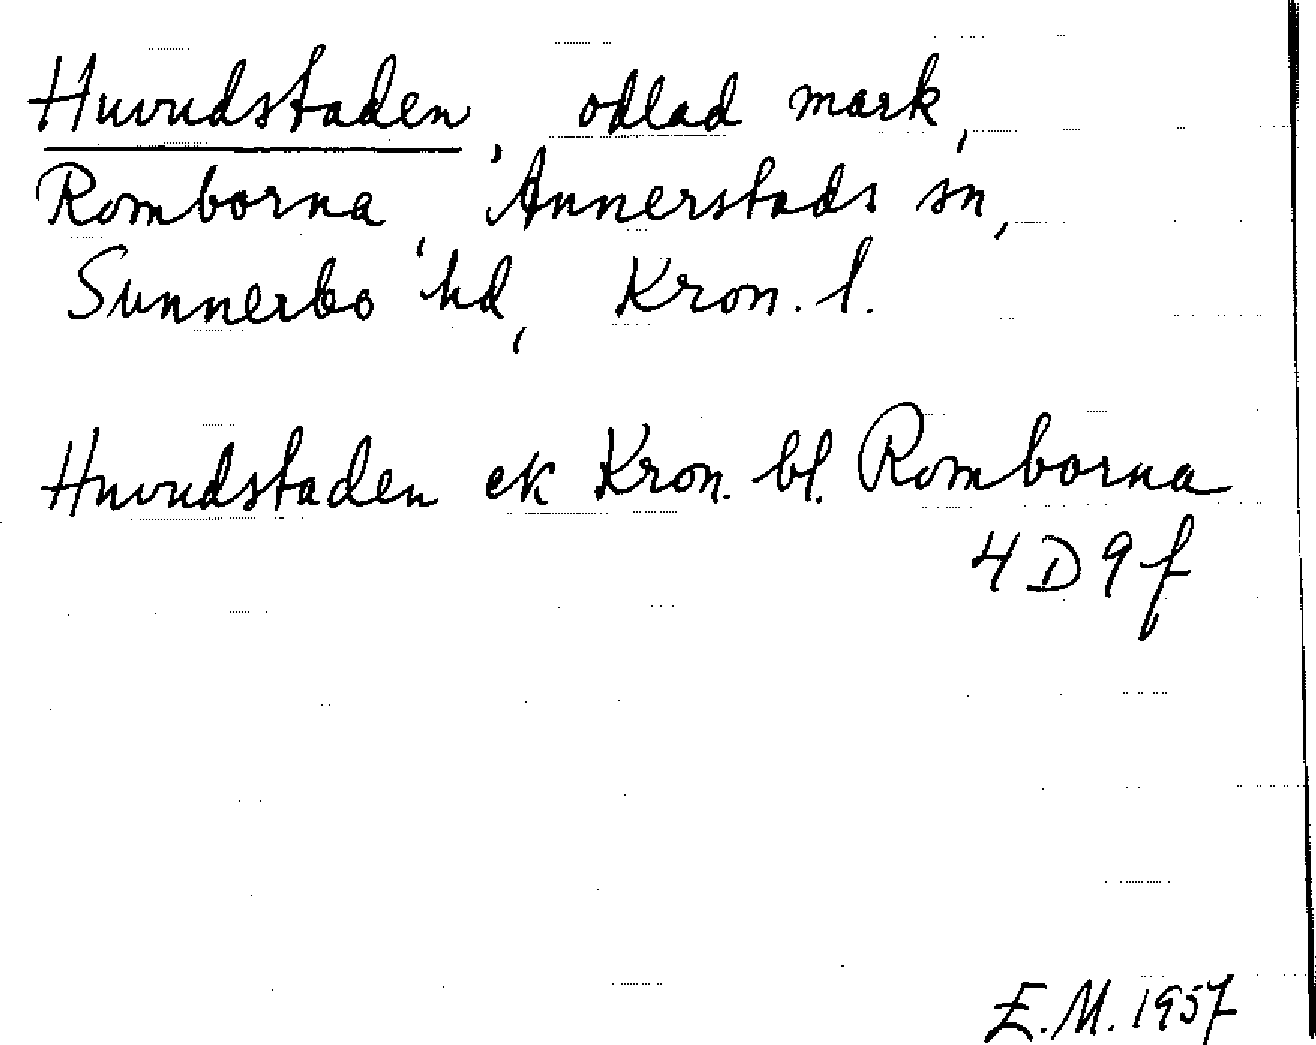 Huvudstaden, odlad mark,
Romborna, Annerstads sn,
Sunnerbo hd, Kron. l.
Huvudstaden ek Kron. bl. Romborna
4D9f
E.M. 1957